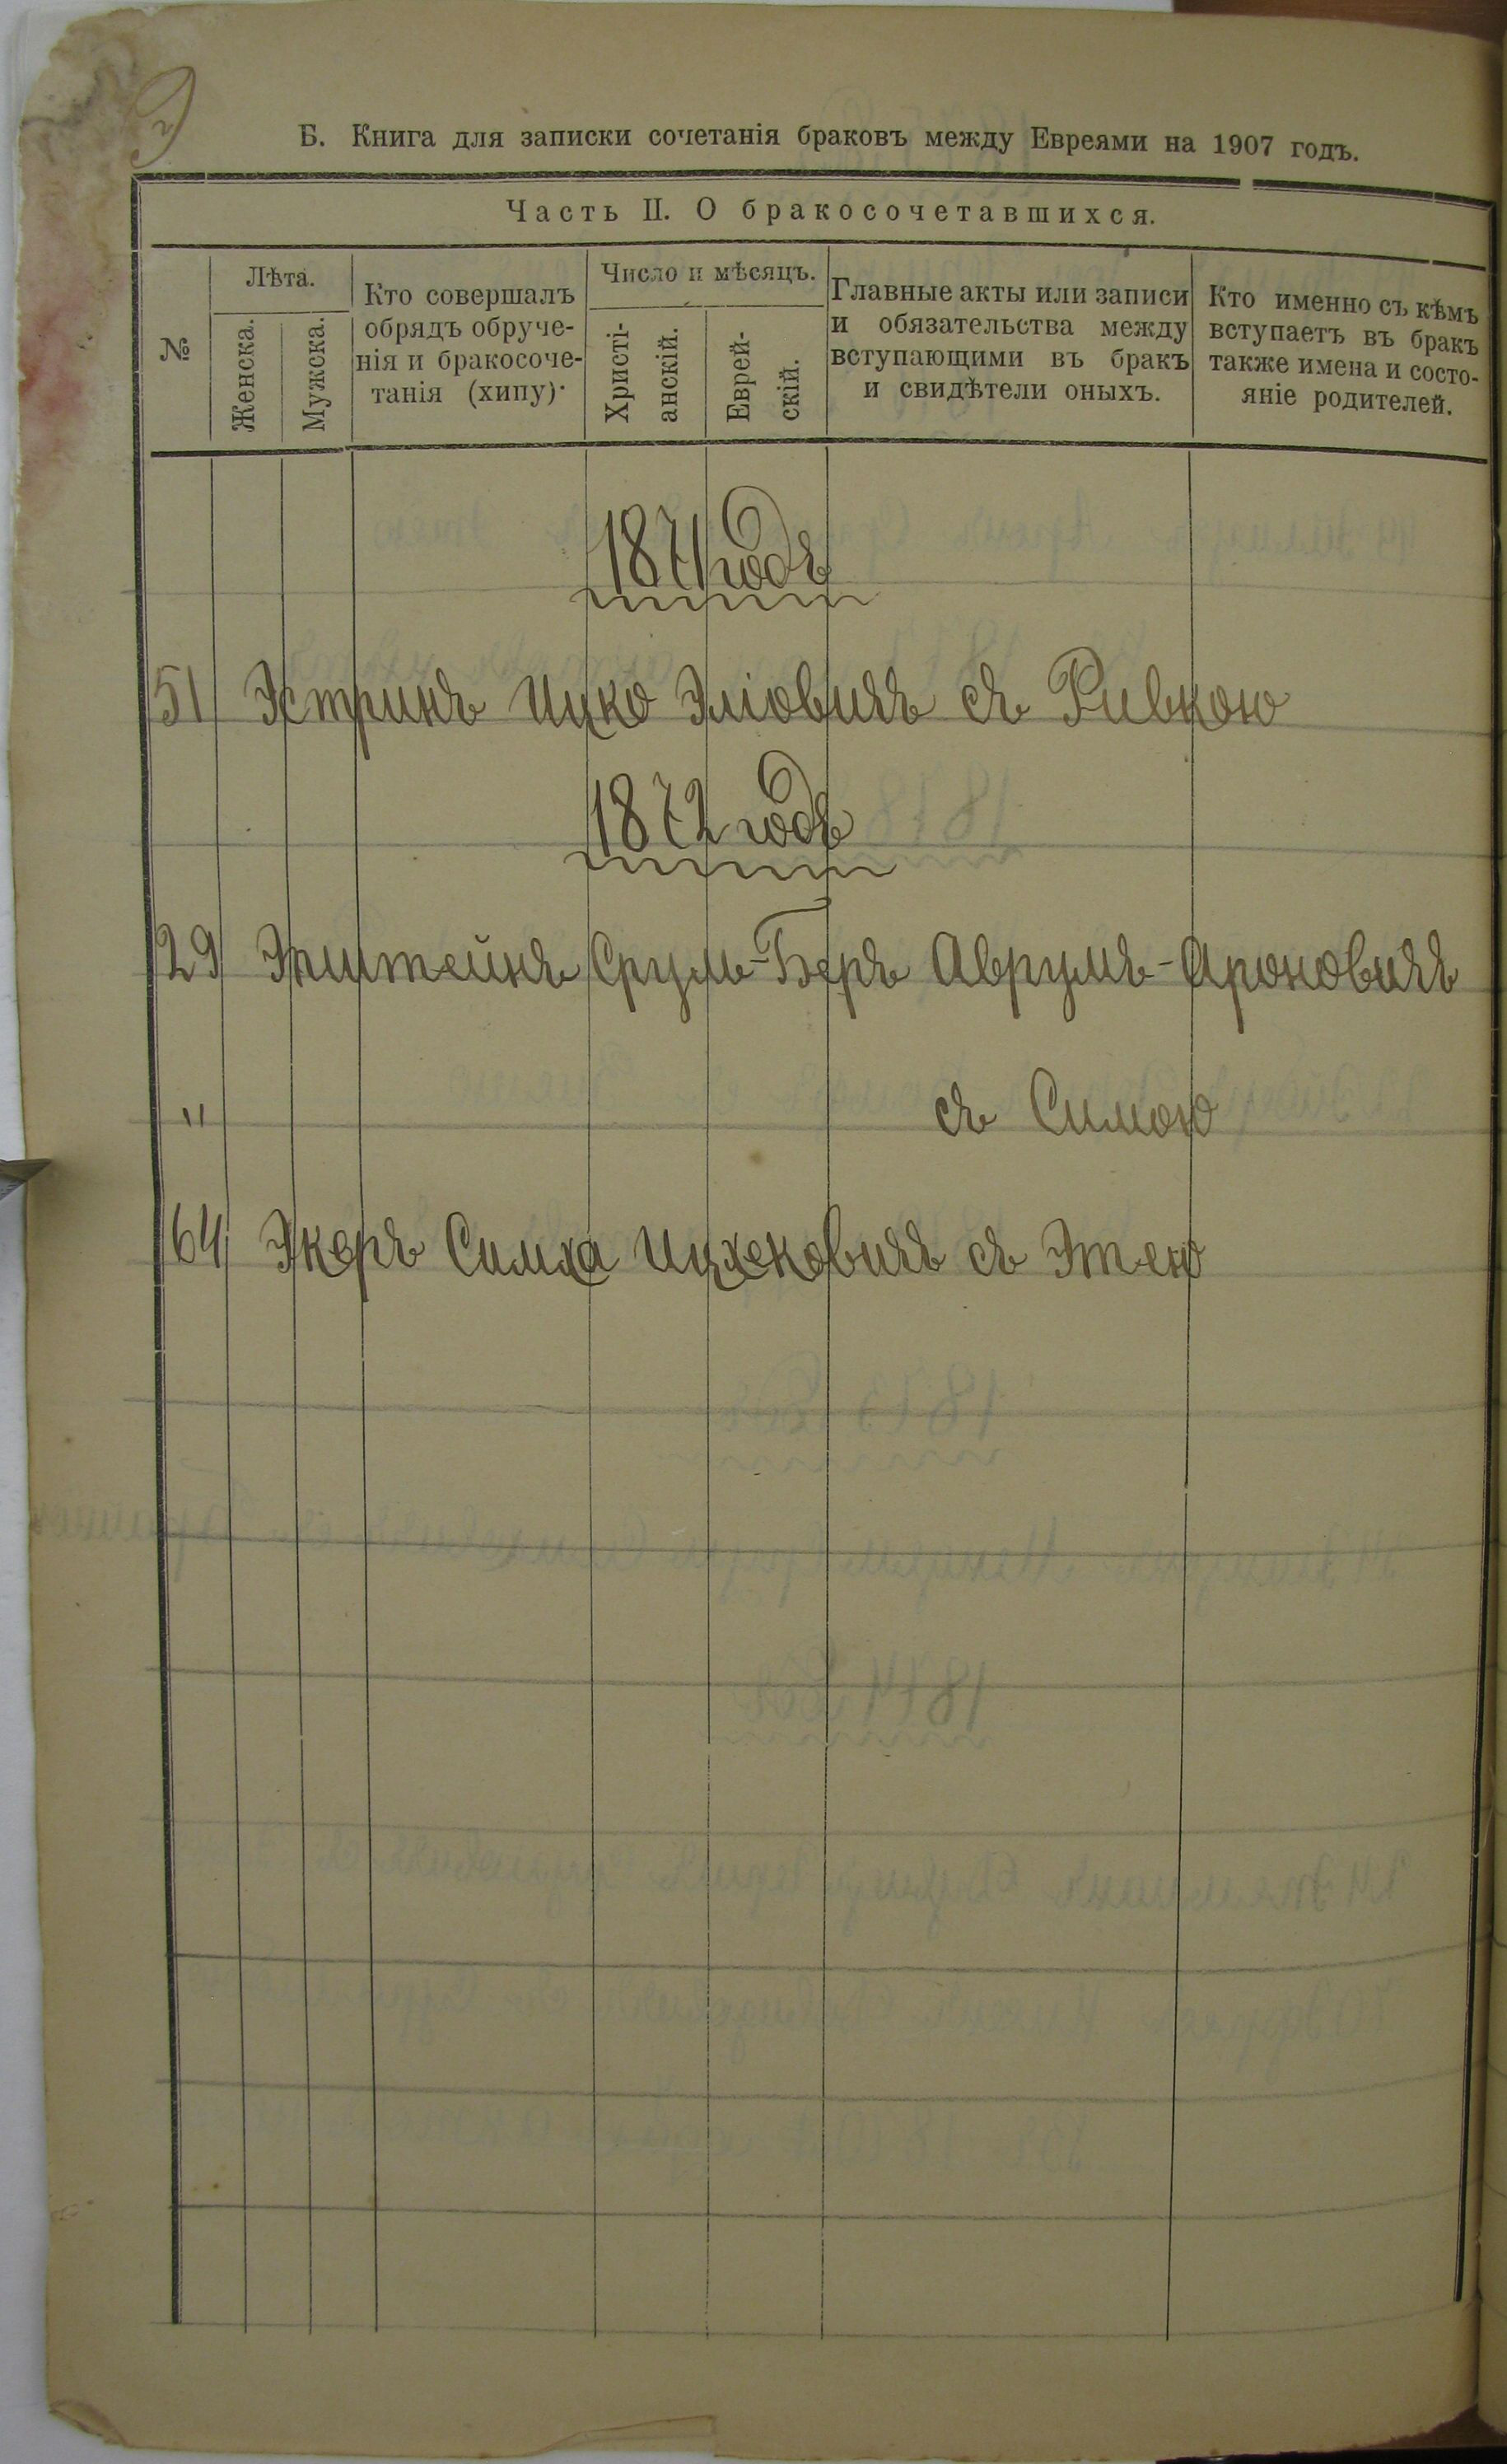 Б. Книга для записки сочетанія браковъ между Евреями на 1907 годъ.
Часть II. О бракосочетавшихся.
№
Лѣта.
Женска.
Мужска.
Кто совершалъ
обрядъ обруче-
нія и бракосоче-
танія (хипу).
Число и мѣсяцъ.
Христі-
анскій.
Еврей-
скій.
Главные акты или записи
и обязательства между
вступающими въ бракъ
и свидѣтели оныхъ.
Кто именно съ кѣмъ
вступаетъ въ бракъ
также имена и состо-
яніе родителей.
1871 годъ
51 Эстринъ Ицко Эліовичъ съ Ривкою
1872 годъ
29 Эпштейнъ Сруль-Беръ Аврумъ-Ароновичъ
" съ Симою
64 Экеръ Симха Ицхековичъ съ Этею